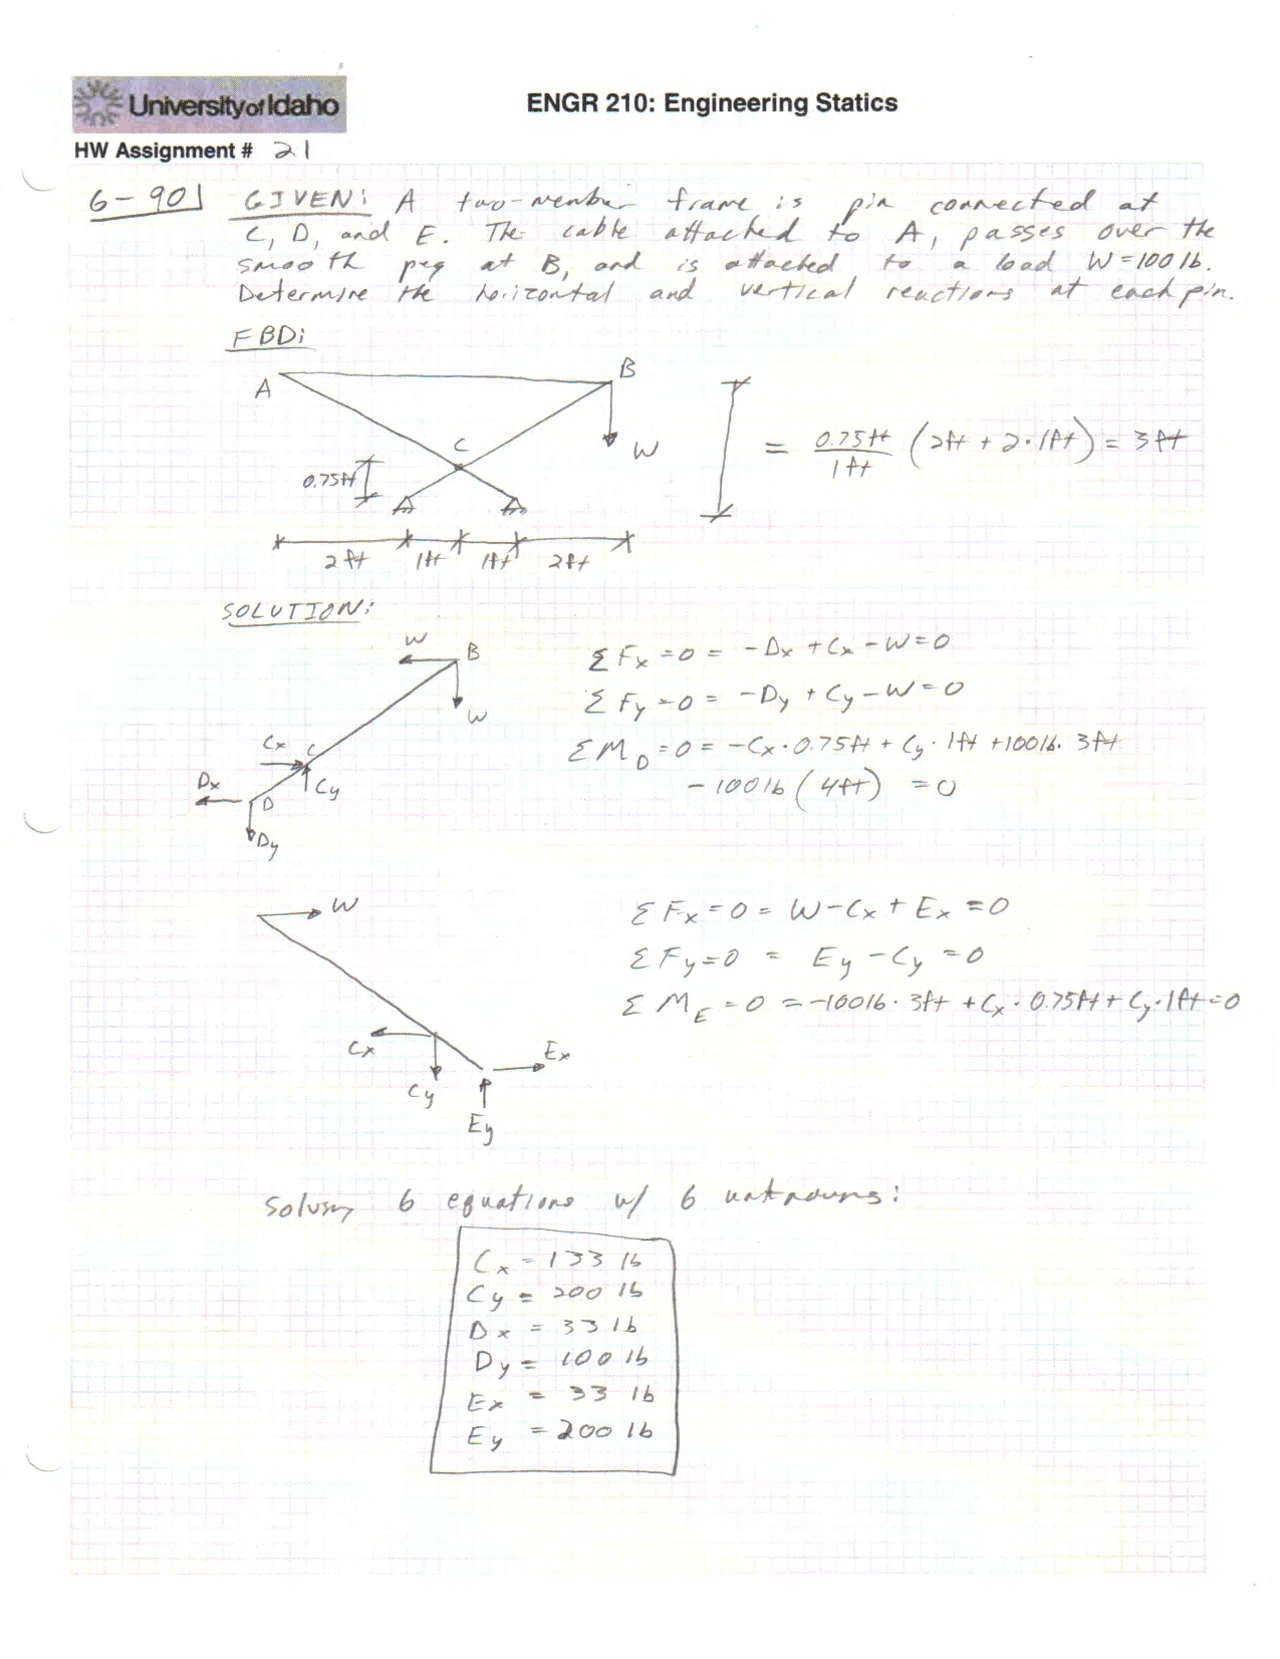 University of Idaho
ENGR 210: Engineering Statics
HW Assignment # 21
6-90 GIVEN: A two-member frame is pin connected at
C, D, and E. The cable attached to A, passes over the
smooth peg at B, and is attached to a load W=100 lb.
Determine the horizontal and vertical reactions at each pin.
FBD:
A
B
C
W
0.75ft
2ft 1ft 1ft 2ft
= 0.75ft/1ft (2ft + 2·1ft) = 3ft
SOLUTION:
W
B
W
Cx
C
Cy
Dx
D
Dy
ΣFx=0 = -Dx + Cx - W=0
ΣFy=0 = -Dy + Cy - W=0
ΣM_D=0 = -Cx·0.75ft + Cy·1ft +100lb·3ft
- 100lb (4ft) = 0
W
Cx
Cy
Ex
Ey
ΣFx=0 = W-Cx+Ex=0
ΣFy=0 = Ey-Cy=0
ΣM_E=0 = -100lb·3ft + Cx·0.75ft + Cy·1ft=0
Solving 6 equations w/ 6 unknowns:
Cx = 133 lb
Cy = 200 lb
Dx = 33 lb
Dy = 100 lb
Ex = 33 lb
Ey = 200 lb